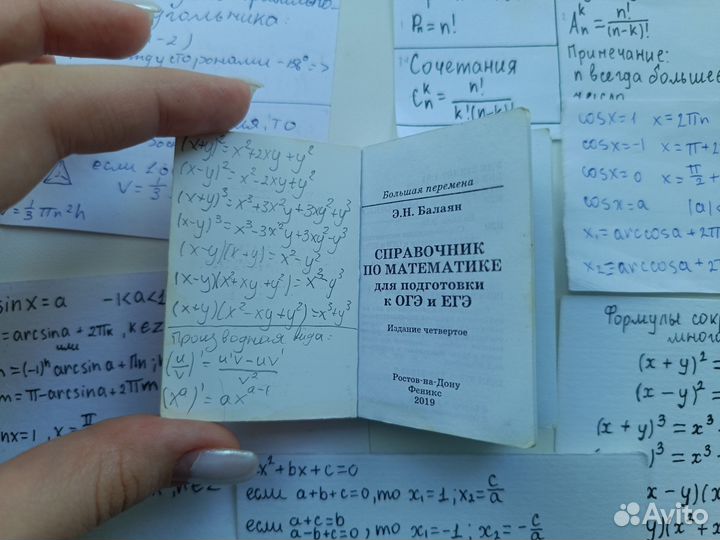 угольника:
-2)
между сторонами -180° =>
если
V = 1/3
= 1/3 πr²h
Pn = n!
Сочетания
C_n^k = n!/k!(n-k)!
A_n^k = n!/(n-k)!
Примечание:
n всегда больше
cosx=1 x=2πn
cosx=-1 x=π+2
cosx=0 x=π/2+
cosx=a |a|<
x₁=arccosa+2π
x₂=-arccosa+2
(x+y)²=x²+2xy+y²
(x-y)²=x²-2xy+y²
(x+y)³=x³+3x²y+3xy²+y³
(x-y)³=x³-3x²y+3xy²-y³
(x-y)(x+y)=x²-y²
(x-y)(x²+xy+y²)=x³-y³
(x+y)(x²-xy+y²)=x³+y³
Производная вида:
(u/v)'=u'v-uv'/v²
(x^a)'=ax^(a-1)
Большая перемена
Э.Н. Балаян
СПРАВОЧНИК
ПО МАТЕМАТИКЕ
для подготовки
к ОГЭ и ЕГЭ
Издание четвертое
Ростов-на-Дону
Феникс
2019
sinx=a -1<a<1
=arcsina+2πk, k∈Z
или
=(-1)ⁿarcsina+πn;
=π-arcsina+2πm
nx=1, x=π
x²+bx+c=0
если a+b+c=0, то x₁=1; x₂=c/a
если a+c=b
a-b+c=0, то x₁=-1; x₂=-c/a
Формулы сок
много
(x+y)²=
(x-y)²=
(x+y)³=x³
)³=x³-
x-y)(x
y)(x²+x
Avito